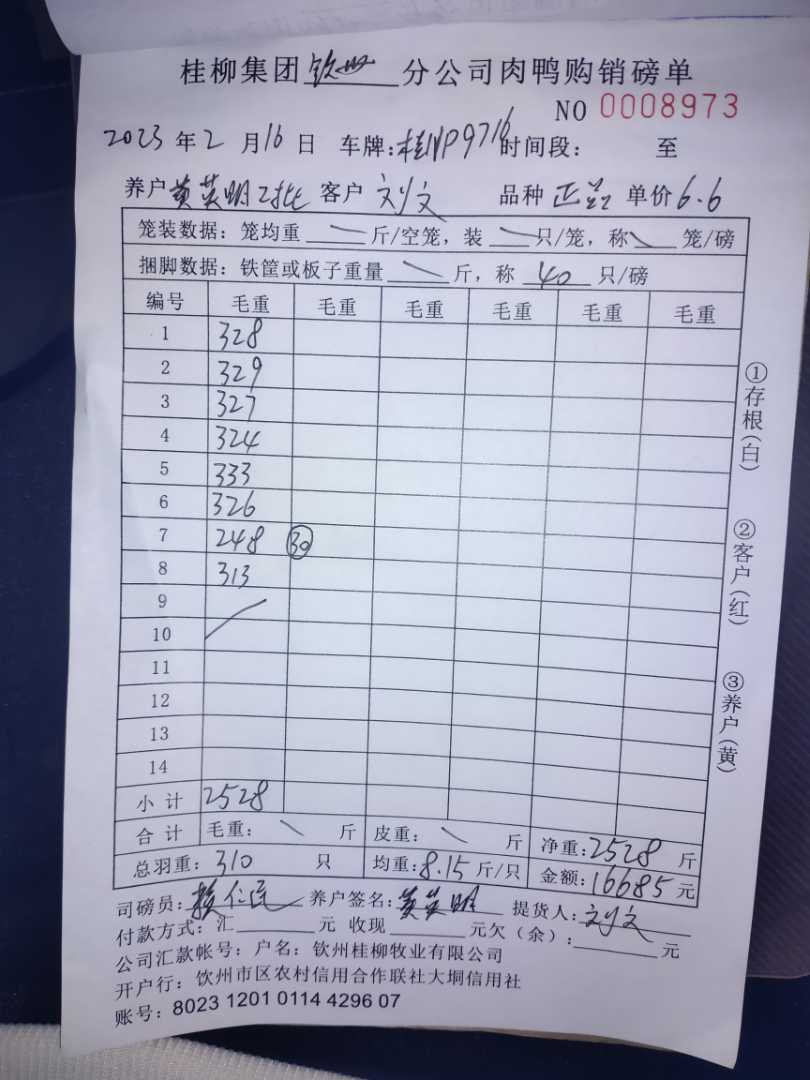 桂柳集团钦州分公司肉鸭购销磅单
NO 0008973
2023年2月16日 车牌:桂NP9716 时间段: 至
养户黄英明2批 客户 刘文 品种 单价6.6
笼装数据: 笼均重 \ 斤/空笼, 装 \ 只/笼, 称 \ 笼/磅
捆脚数据: 铁筐或板子重量 \ 斤, 称 40 只/磅
编号 毛重 毛重 毛重 毛重 毛重 毛重
1 328
2 329
3 327
4 324
5 333
6 326
7 248 30
8 313
9
10
11
12
13
14
小计 2528
合计 毛重: \ 斤 皮重: \ 斤 净重:2528斤
总羽重: 310 只 均重:8.15斤/只 金额:16685元
司磅员: 养户签名:黄英明 提货人:刘文
付款方式:汇 元 收现 元欠(余): 元
公司汇款帐号: 户名: 钦州桂柳牧业有限公司
开户行: 钦州市区农村信用合作联社大垌信用社
账号: 8023 1201 0114 4296 07
①存根(白)
②客户(红)
③养户(黄)